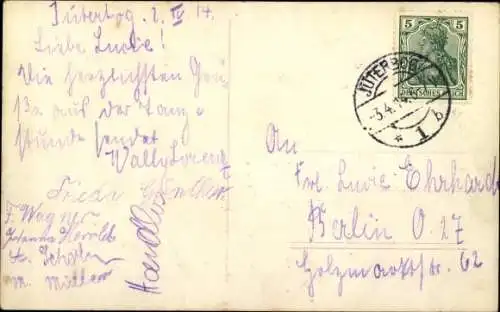 Jüterbog, 2. IV 14.
Liebe Lucie!
Die herzlichsten Grü-
ße aus der Tanz-
stunde sendet
Wally Lorenz
Frieda
F. Wagner
Johanna
M. Müller
5
DEUTSCHES
JÜTERBOG
-3.4.14.
* 1 b
An
Frl. Lucie Ehrhard
Berlin O. 27
Holzmarktstr. 62